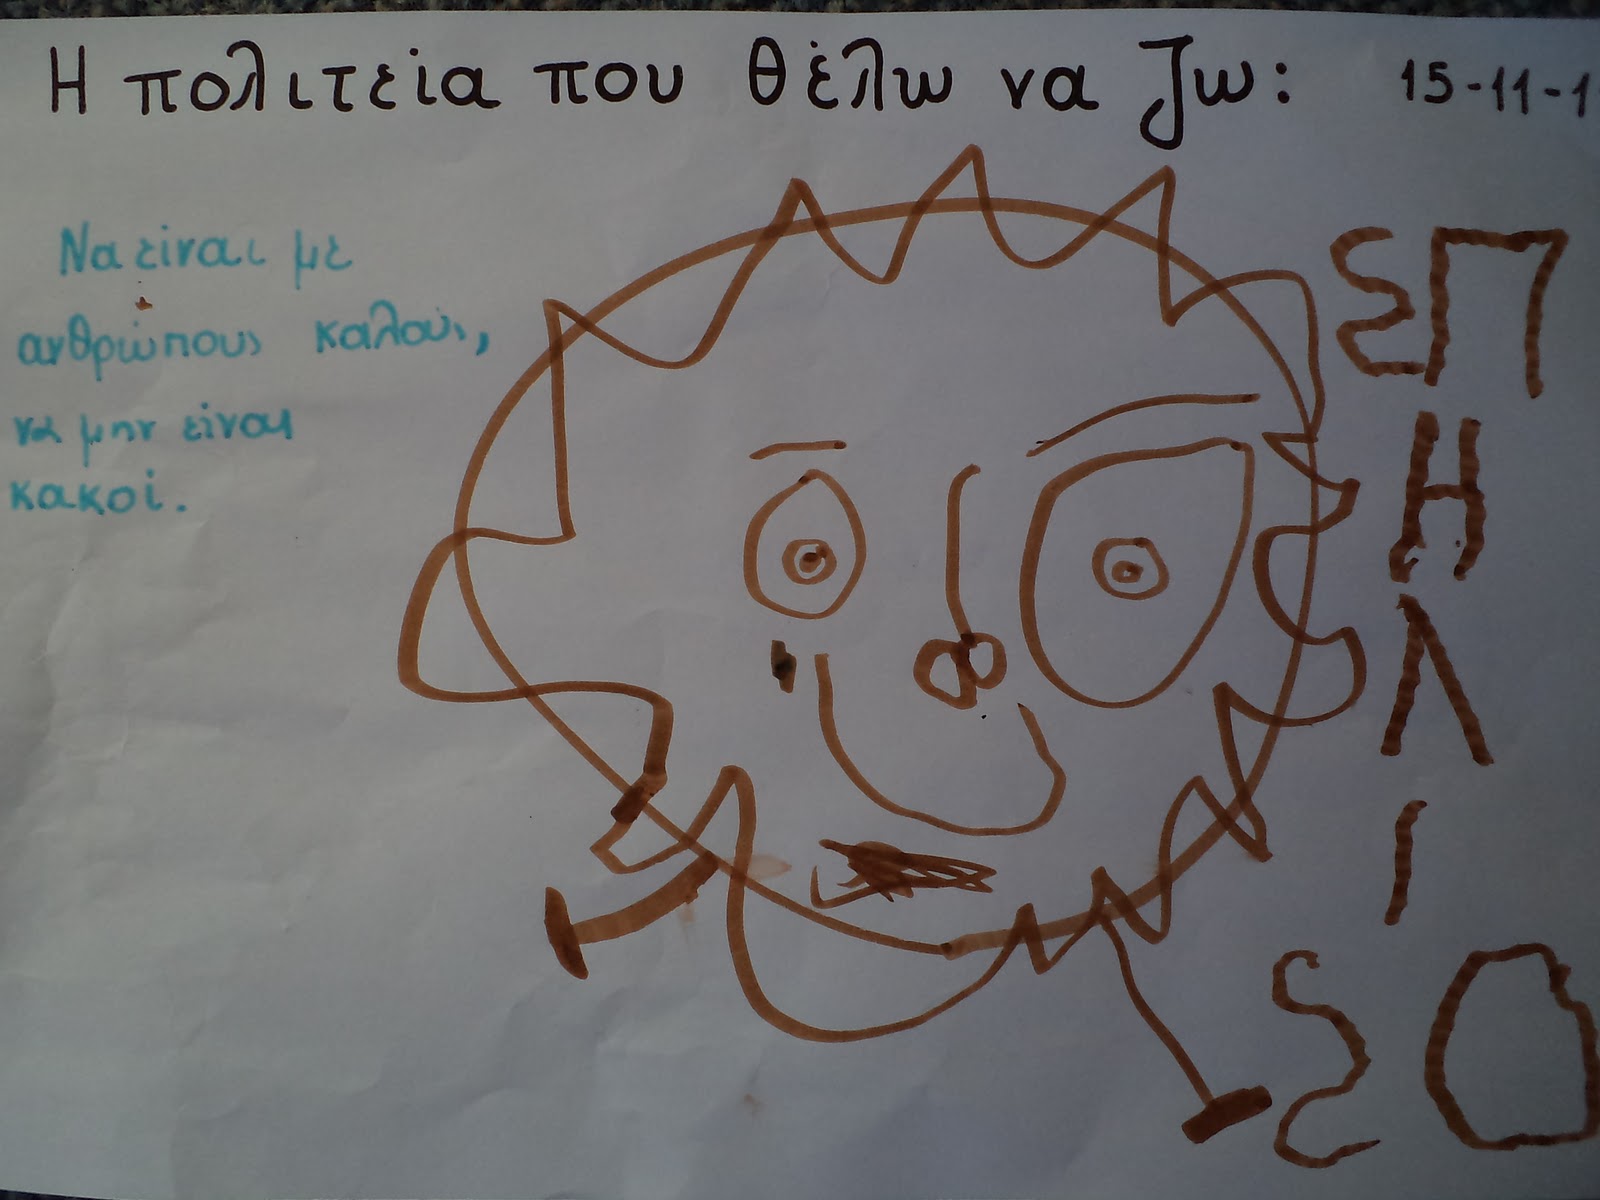 Η πολιτεία που θέλω να ζω: 15-11-1
Να είναι με
ανθρώπους καλούς,
να μην είναι
κακοί.
ΣΠ
Η
Λ
Ι
ΣΟ